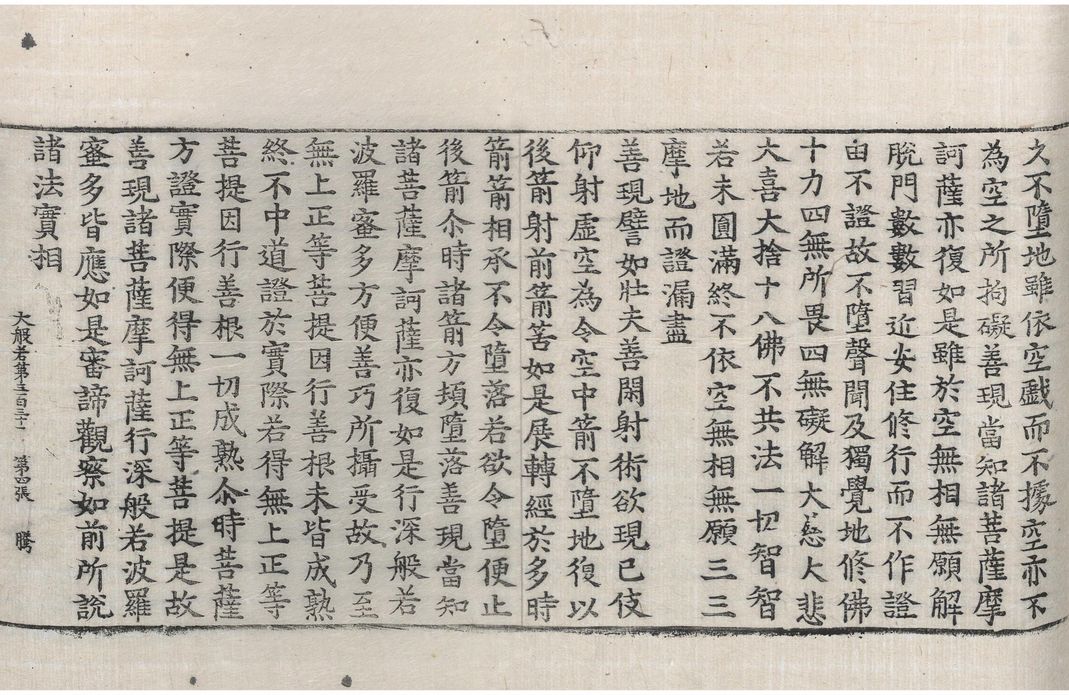 久不墮地雖依空戲而不據空亦不
為空之所拘礙善現當知諸菩薩摩
訶薩亦復如是雖於空無相無願解
脫門數數習近安住修行而不作證
由不證故不墮聲聞及獨覺地修佛
十力四無所畏四無礙解大慈大悲
大喜大捨十八佛不共法一切智智
若未圓滿終不依空無相無願三三
摩地而證漏盡
善現譬如壯夫善閑射術欲現己伎
仰射虛空為令空中箭不墮地復以
後箭射前箭筈如是展轉經於多時
箭箭相承不令墮落若欲令墮便止
後箭尒時諸箭方頓墮落善現當知
諸菩薩摩訶薩亦復如是行深般若
波羅蜜多方便善巧所攝受故乃至
無上正等菩提因行善根未皆成熟
終不中道證於實際若得無上正等
菩提因行善根一切成熟尒時菩薩
方證實際便得無上正等菩提是故
善現諸菩薩摩訶薩行深般若波羅
蜜多皆應如是審諦觀察如前所說
諸法實相
大般若第三百三十一 第四張 騰